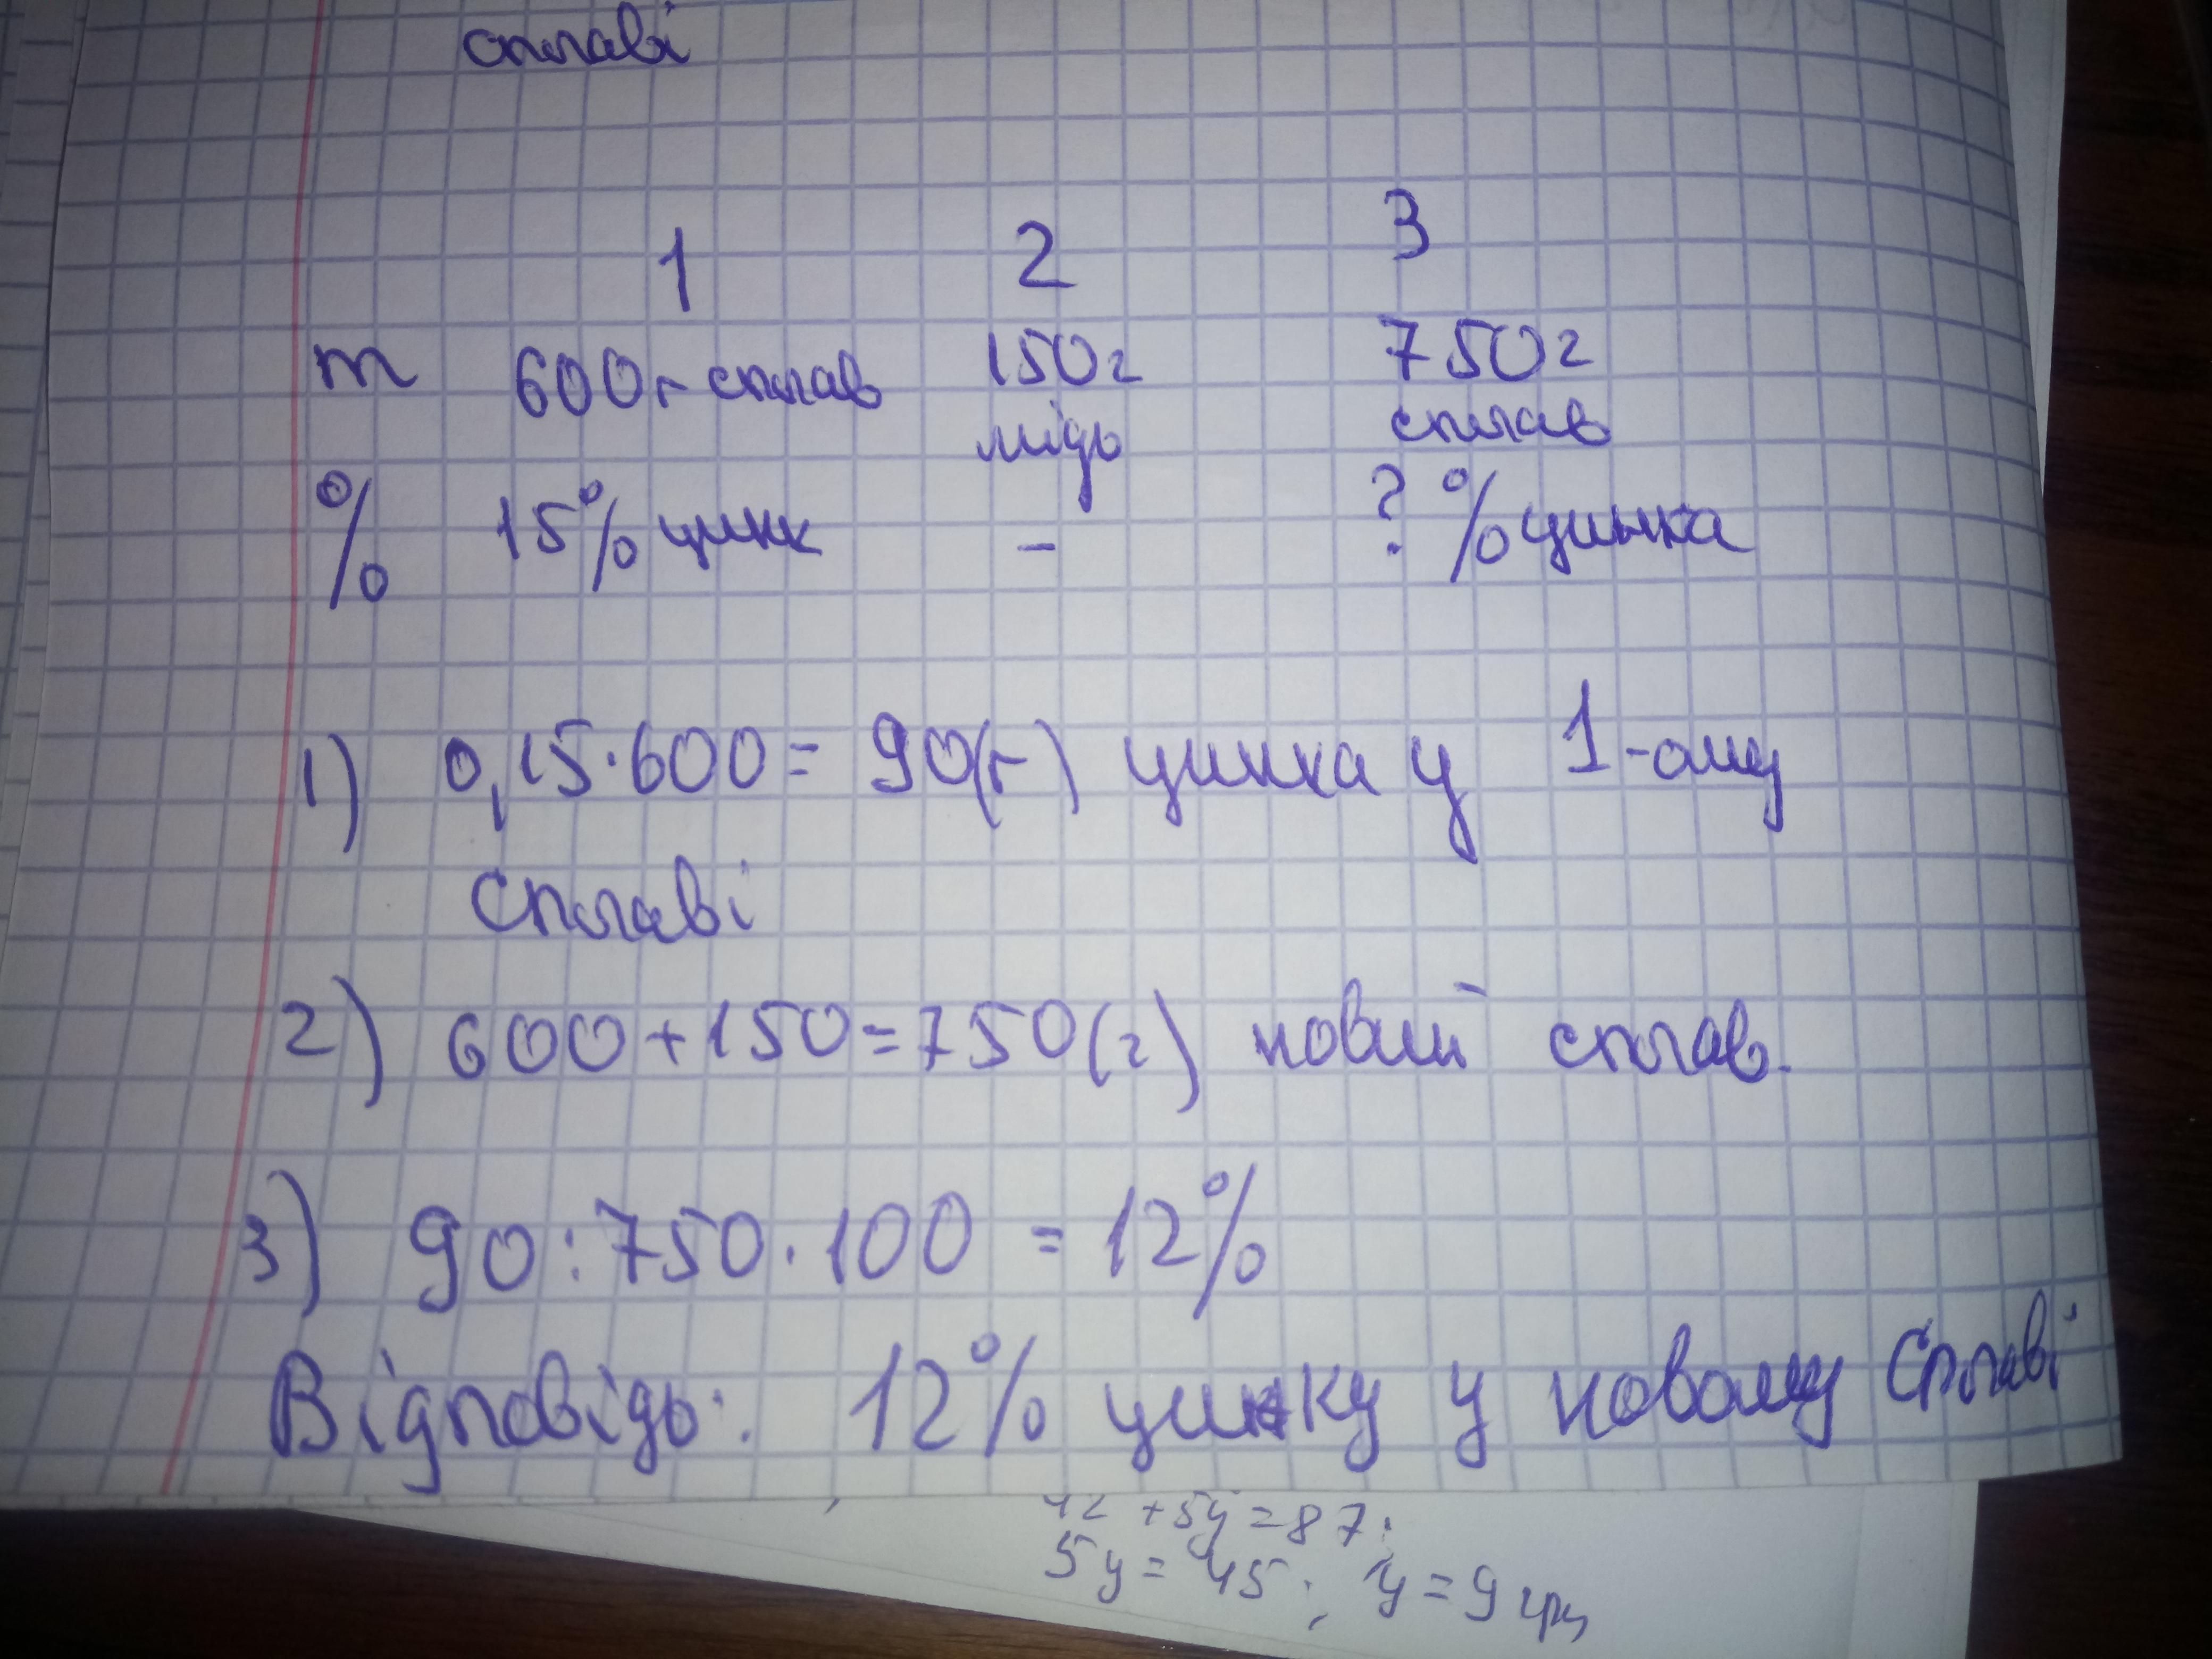 сплаві
1 2 3
m 600г сплав 150г 750г
мідь сплав
% 15% цинк - ? % цинка
1) 0,15·600= 90(г) цинка у 1-ому
сплаві
2) 600+150=750(г) новий сплав.
3) 90:750·100 = 12%
Відповідь: 12% цинку у новому сплаві
42 +5y=87;
5y= 45; y=9 грн